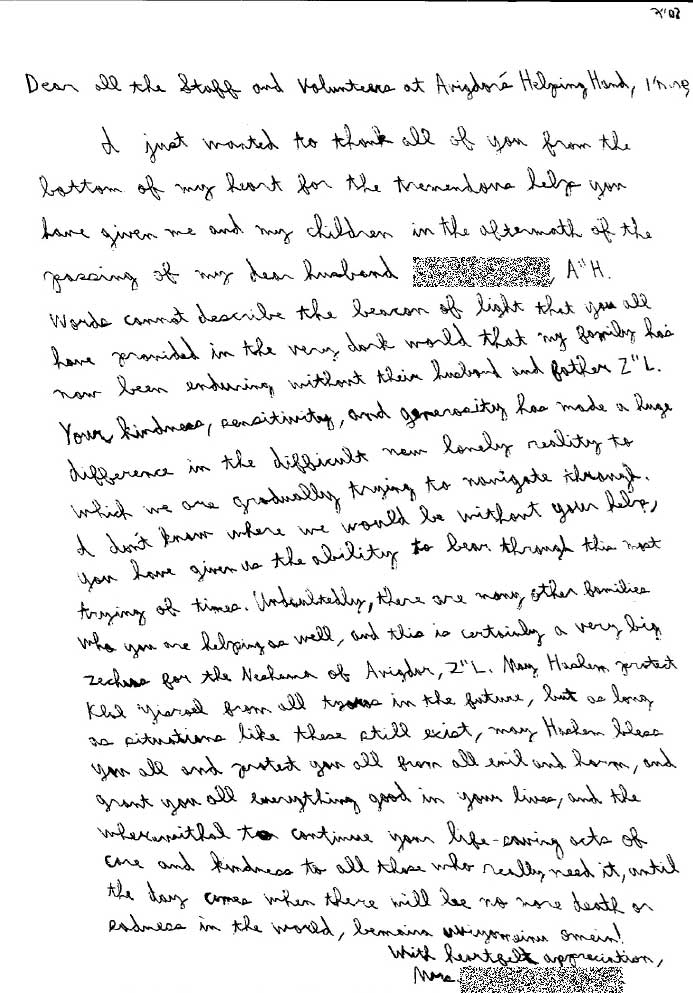 בס"ד
Dear all the Staff and Volunteers at Avigdor's Helping Hand,
I just wanted to thank all of you from the
bottom of my heart for the tremendous help you
have given me and my children in the aftermath of the
passing of my dear husband , A"H.
Words cannot describe the beacon of light that you all
have provided in the very dark world that my family has
now been enduring without their husband and father Z"L.
Your kindness, sensitivity, and generosity has made a huge
difference in the difficult new lonely reality to
which we are gradually trying to navigate through.
I don't know where we would be without your help,
you have given us the ability to bear through this most
trying of times. Undoubtedly, there are many other families
who you are helping as well, and this is certainly a very big
zechus for the Neshama of Avigdor, Z"L. May Hashem protect
Klal Yisroel from all tzoros in the future, but as long
as situations like these still exist, may Hashem bless
you all and protect you all from all evil and harm, and
grant you all everything good in your lives, and the
wherewithal to continue your life-saving acts of
care and kindness to all those who really need it, until
the day comes when there will be no more death or
sadness in the world, bemaira uviyomeinu omein!
With heartfelt appreciation,
Mrs.